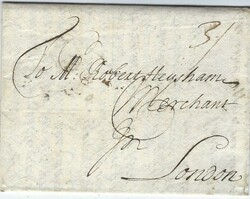 3/
To Mr. Robert Heysham
Merchant
for
London